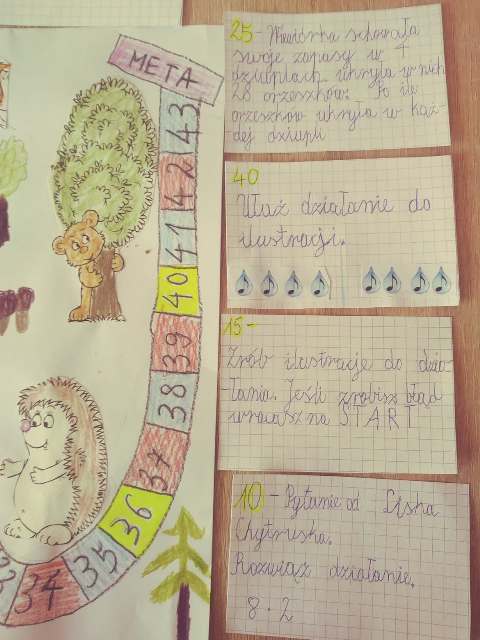 META
43
42
41
40
39
38
37
36
35
34
33
25 - Wiewiórka schowała
swoje zapasy w 4
dziuplach ukryła w nich
28 orzeszków. Po ile
orzeszków ukryła w każ
dej dziupli
40
Ułóż działanie do
ilustracji.
15 -
Zrób ilustrację do dzia-
łania. Jeśli zrobisz błąd
wracasz na START
10 - Pytanie od Liska
Chytruska.
Rozwiąż działanie.
8 · 2